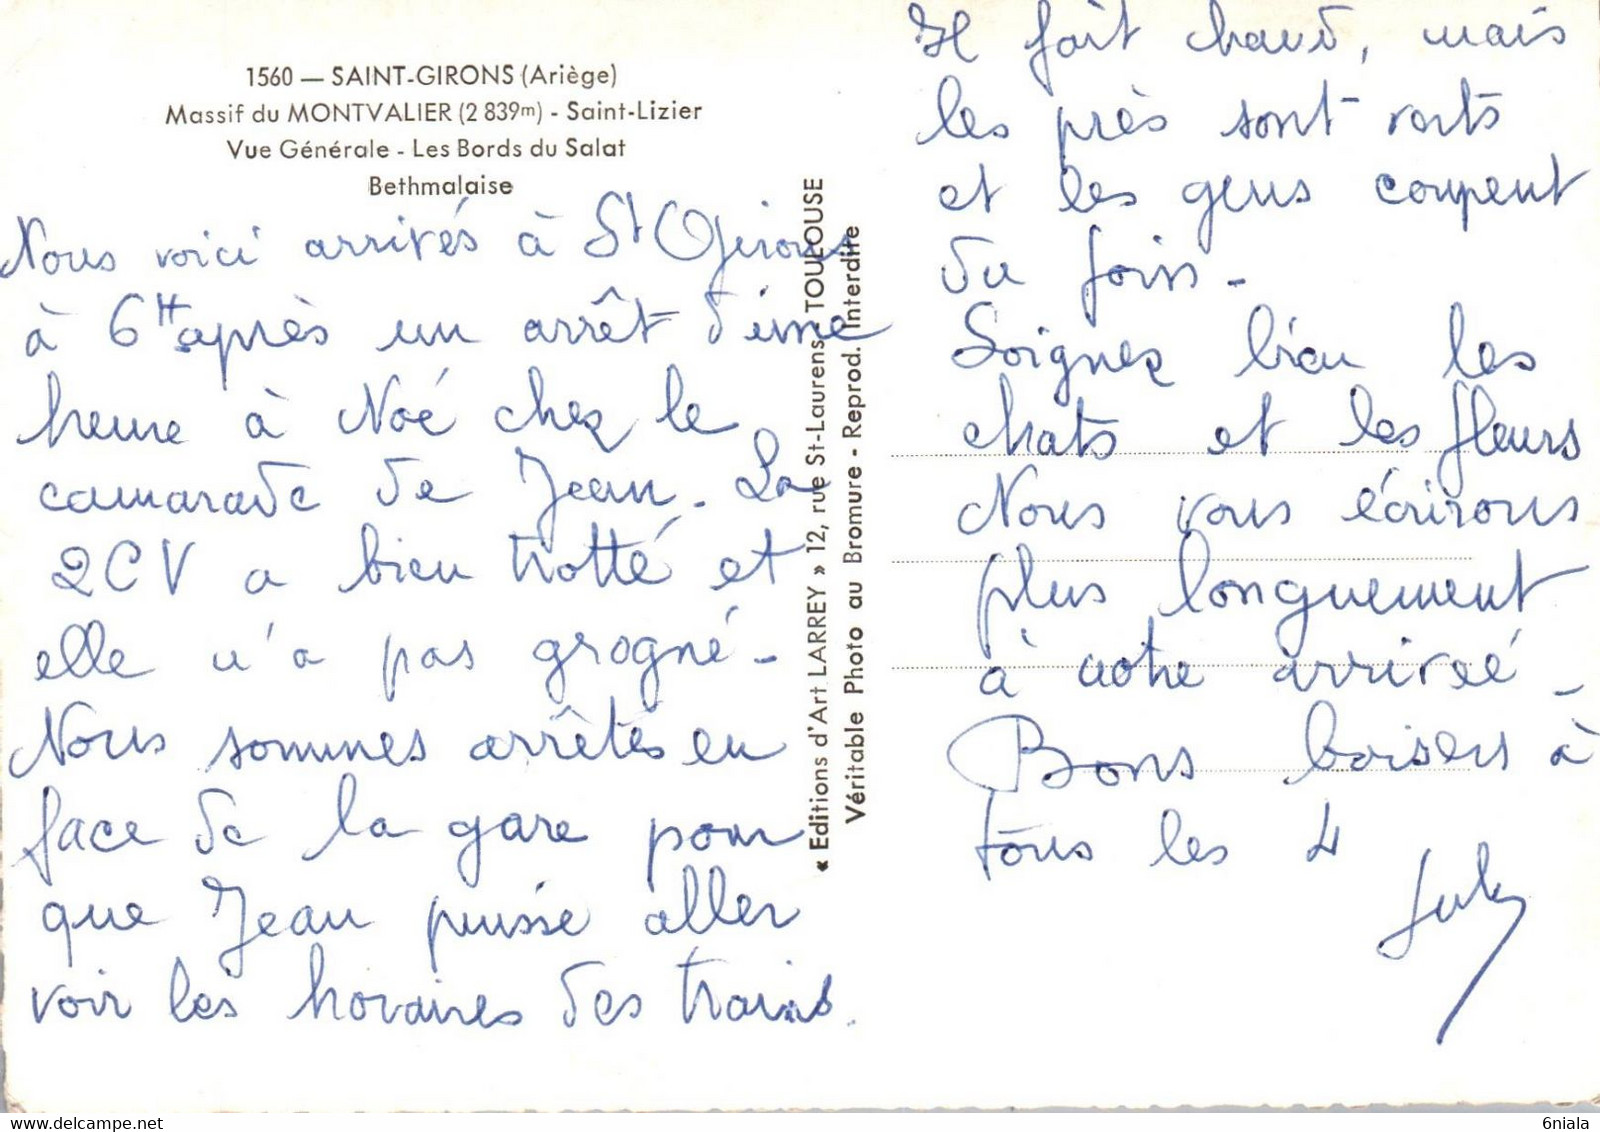 1560 — SAINT-GIRONS (Ariège)
Massif du MONTVALIER (2 839m) - Saint-Lizier
Vue Générale - Les Bords du Salat
Bethmalaise
Nous voici arrivés à St Girons
à 6H après un arrêt d'une
heure à Noé chez le
camarade de Jean. La
2CV a bien trotté et
elle n'a pas grogné -
Nous sommes arrêtés en
face de la gare pour
que Jean puisse aller
voir les horaires des trains.
« Editions d'Art LARREY » 12, rue St-Laurens - TOULOUSE
Véritable Photo au Bromure - Reprod. Interdite
Il fait chaud, mais
les près sont verts
et les gens coupent
du foin -
Soignez bien les
chats et les fleurs
Nous vous écrirons
plus longuement
à notre arrivée -
Bons baisers à
tous les 4
6niala